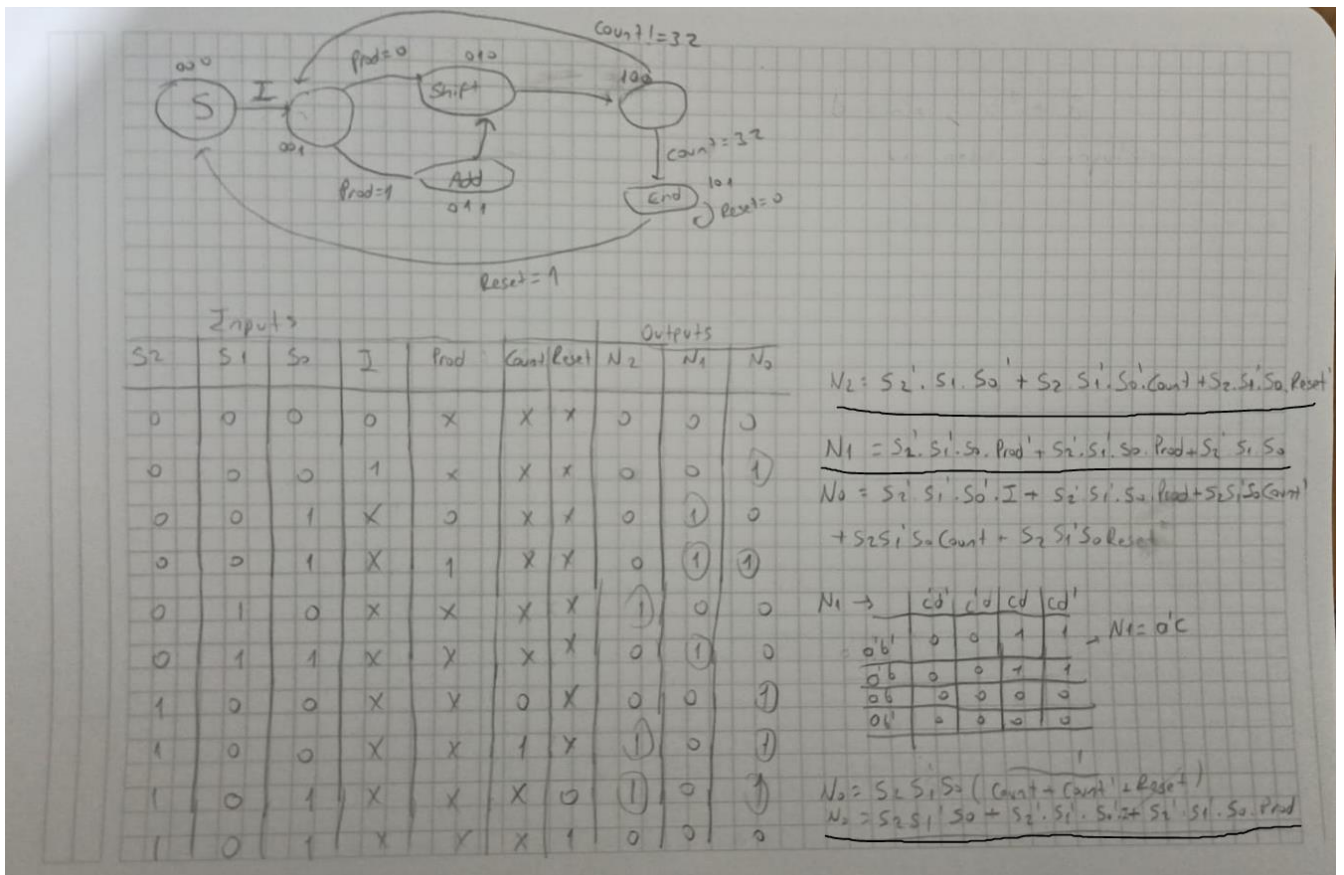 Count != 32
000
I
Prod=0
010
100
S
Shift
001
Count=32
Prod=1
Add
011
End
101
Reset=0
Reset=1
Inputs Outputs
S2 S1 S0 I Prod Count Reset N2 N1 N0
0 0 0 0 x x x 0 0 0
0 0 0 1 x x x 0 0 1
0 0 1 X 0 x x 0 1 0
0 0 1 X 1 x x 0 1 1
0 1 0 X X X X 1 0 0
0 1 1 X X X X 0 1 0
1 0 0 X X 0 X 0 0 1
1 0 0 X X 1 X 1 0 1
1 0 1 X X X 0 1 0 1
1 0 1 X X X 1 0 0 0
N2 = S2'. S1. S0' + S2. S1'. S0'. Count + S2. S1'. S0. Reset'
N1 = S2'. S1'. S0. Prod' + S2'. S1'. S0. Prod + S2' S1 S0
N0 = S2' S1'. S0'. I + S2' S1'. S0. Prod + S2 S1' S0 Count'
+ S2 S1' S0 Count + S2 S1' S0 Reset'
N1 → c'd' c'd cd cd'
a'b' 0 0 1 1
N1 = a'c
a'b 0 0 1 1
ab 0 0 0 0
ab' 0 0 0 0
N0 = S2 S1' S0 (Count + Count' + Reset')
N0 = S2 S1' S0 + S2'. S1'. S0'. I + S2'. S1'. S0. Prod